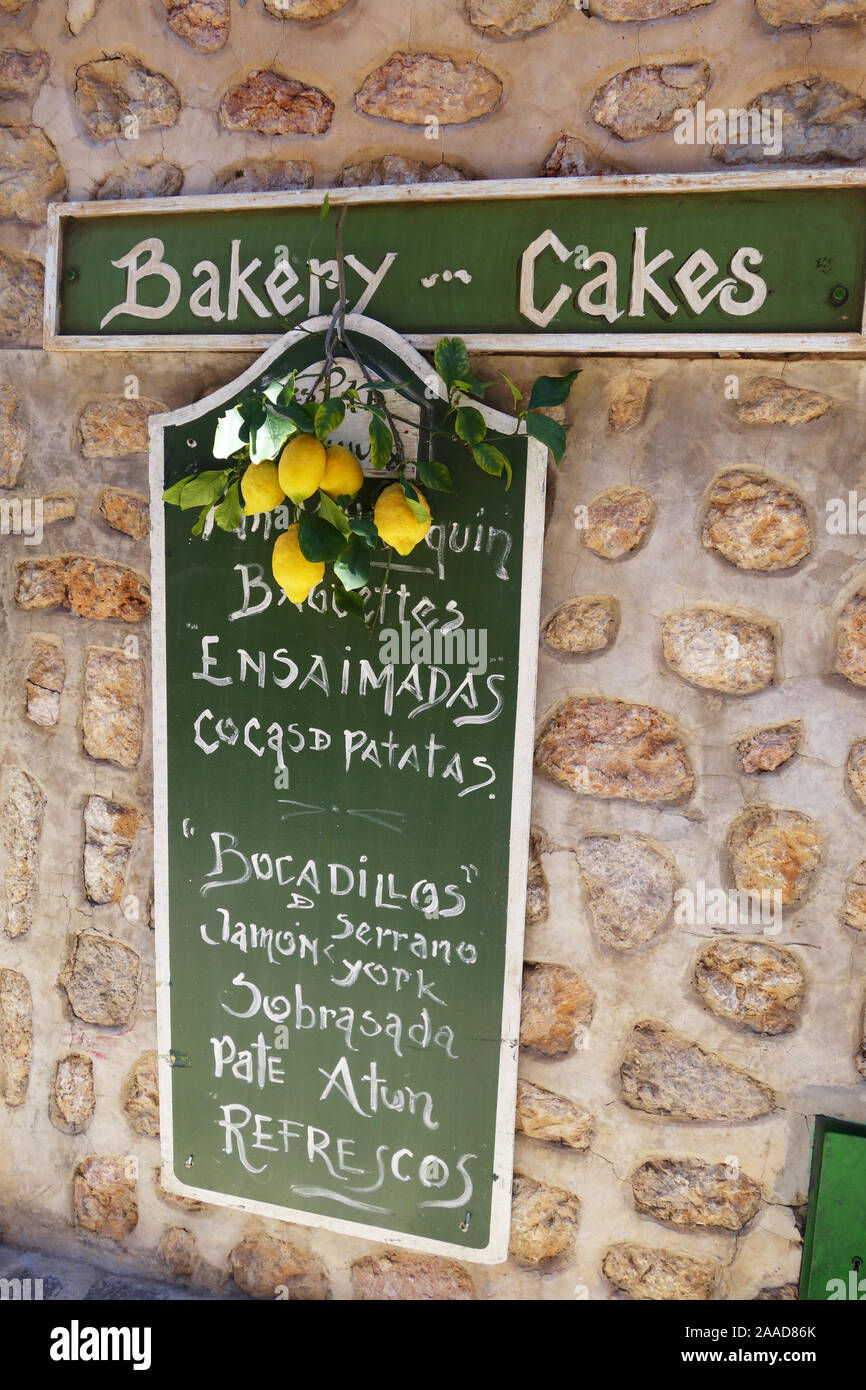 Bakery ... Cakes
BAGUETTES
"ENSAIMADAS
COCAS D PATATAS.
"BOCADILLOS"
D
Jamón < Serrano
York
Sobrasada
Pate Atun
REFRESCOS
alamy
Image ID: 2AAD86K
www.alamy.com